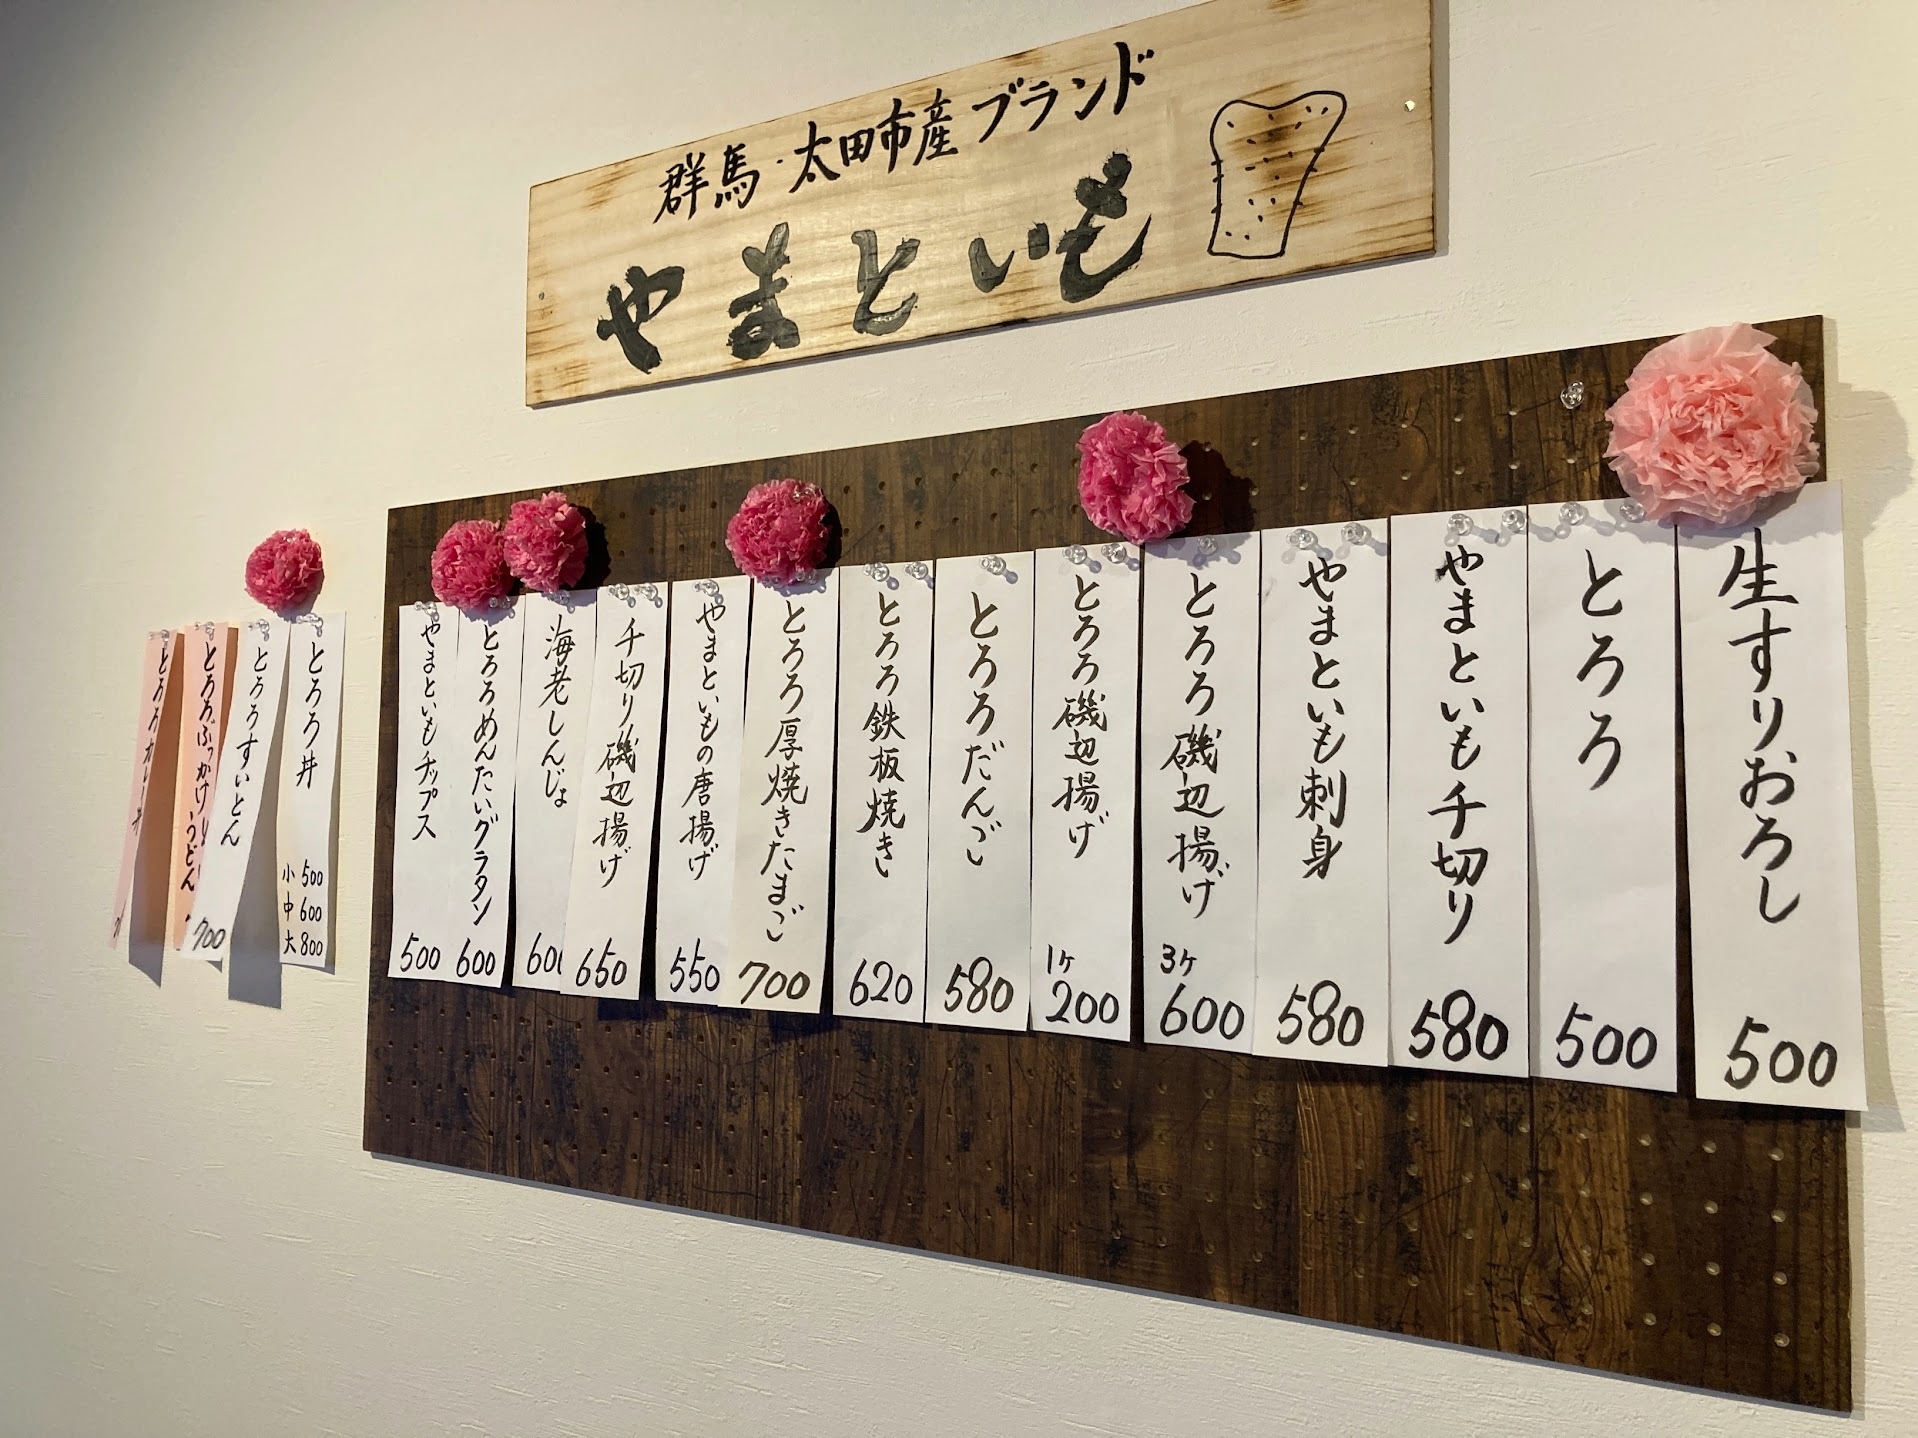 群馬・太田市産ブランド
やまといも
生すりおろし
500
とろろ
500
やまといも千切り
580
やまといも刺身
580
とろろ磯辺揚げ
3ヶ
600
とろろ磯辺揚げ
1ヶ
200
とろろだんご
580
とろろ鉄板焼き
620
とろろ厚焼きたまご
700
やまといもの唐揚げ
550
千切り磯辺揚げ
650
海老しんじょ
600
とろろめんたいグラタン
600
やまといもチップス
500
とろろ丼
小 500
中 600
大 800
とろろすいとん
700
とろろぶっかけ
うどん
とろろカレー丼